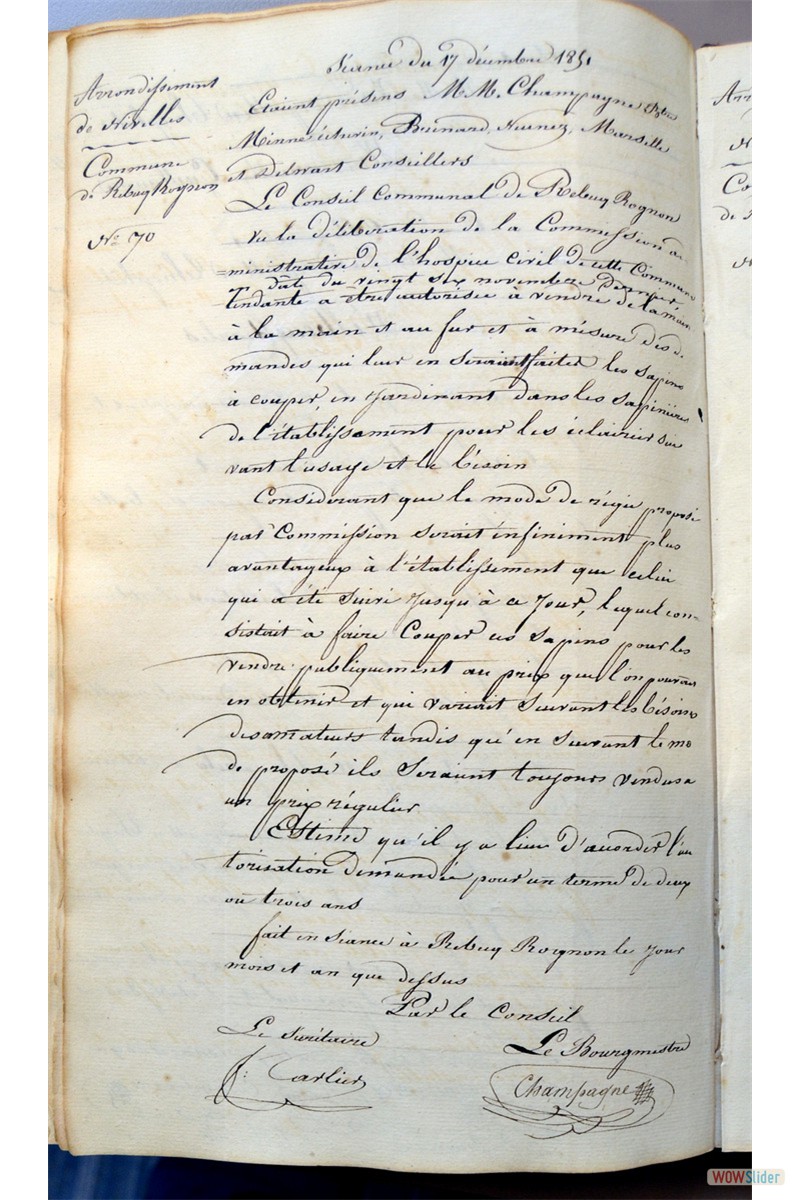 Séance du 17 décembre 1851
Arrondissement
de Nivelles
Commune
de Rebecq Rognon
No 70
Etaient présens M.M. Champagne
Minne échevin, Brénard, Neunez, Marselle
et Delwart Conseillers
Le Conseil Communal de Rebecq Rognon
Vu la délibération de la Commission ad
=ministrative de l'hospice civil de cette Commune
en date du vingt six novembre dernier
tendante a être autorisée à vendre de la main
à la main et au fur et à mésure des de
mandes qui leur en seraient faites les sapins
à couper, en jardinant dans les sapinières
de l'établissement pour les éclaircir sui
vant l'usage et le bésoin
Considérant que le mode de régie proposé
par Commission serait infiniment plus
avantageux à l'établissement que celui
qui a été suivi jusqu'à ce jour, lequel con
sistait à faire Couper ces sapins pour les
vendre publiquement au prix que l'on pouvait
en obtenir et qui variait suivant les bésoins
des amateurs tandis qu'en suivant le mo
de proposé ils seraient toujours vendus a
un prix régulier
Estime qu'il y a lieu d'accorder l'au
torisation demandée pour un terme de deux
ou trois ans
fait en séance à Rebecq Rognon le jour
mois et an que dessus
Par le Conseil
Le Secrétaire
Le Bourgmestre
Carlier
Champagne
Arr
N
Co
de
N
WOWSlider